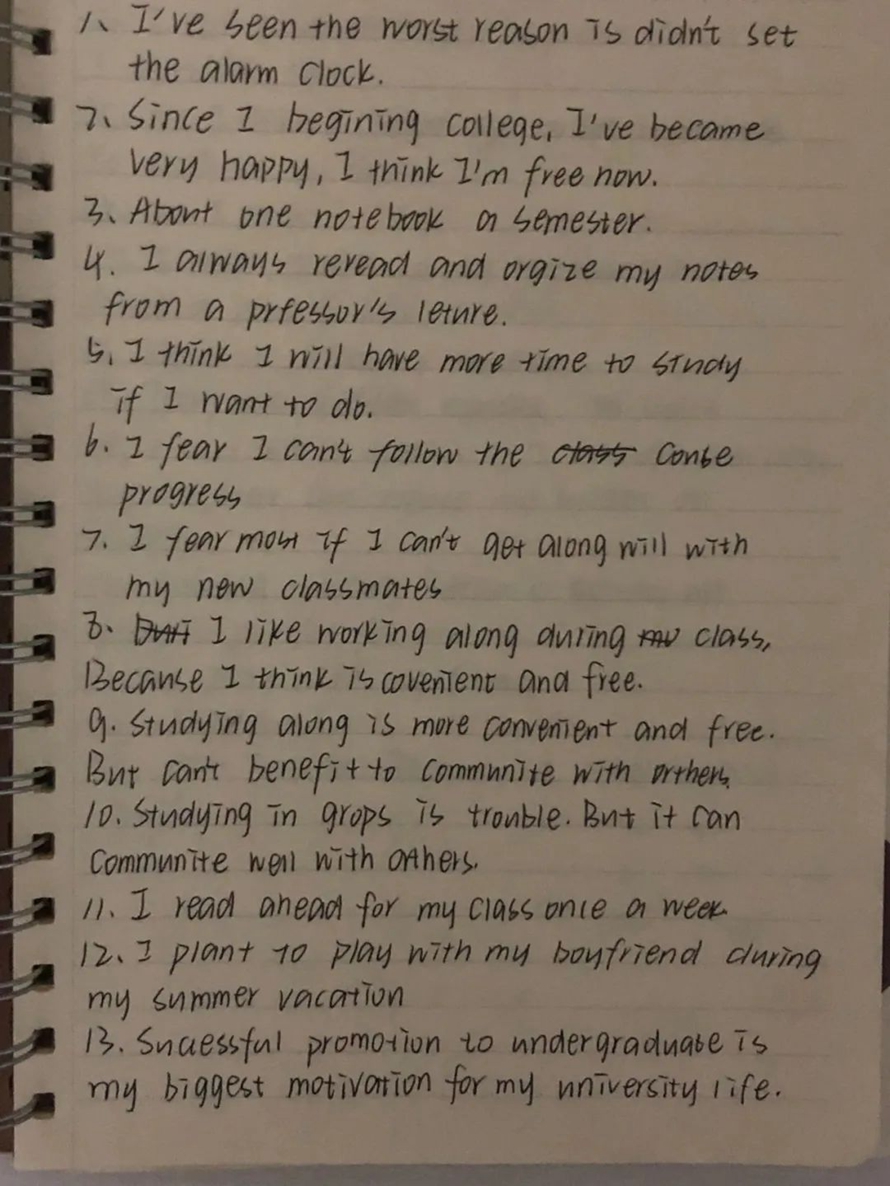 1、I've seen the worst reason is didn't set
the alarm clock.
2、Since I begining college, I've became
very happy, I think I'm free now.
3、About one notebook a semester.
4. I always reread and orgize my notes
from a prfessor's leture.
5. I think I will have more time to study
if I want to do.
6. I fear I can't follow the class conse
progress
7. I fear most if I can't get along will with
my new classmates
8. I like working along during class,
Because I think is covenient and free.
9. Studying along is more convenient and free.
But can't benefit to communite with orthers.
10. Studying in grops is trouble. But it can
communite well with orthers.
11. I read ahead for my class once a week
12、I plant to play with my boyfriend during
my summer vacation
13. Sucessful promotion to undergraduate is
my biggest motivation for my university life.